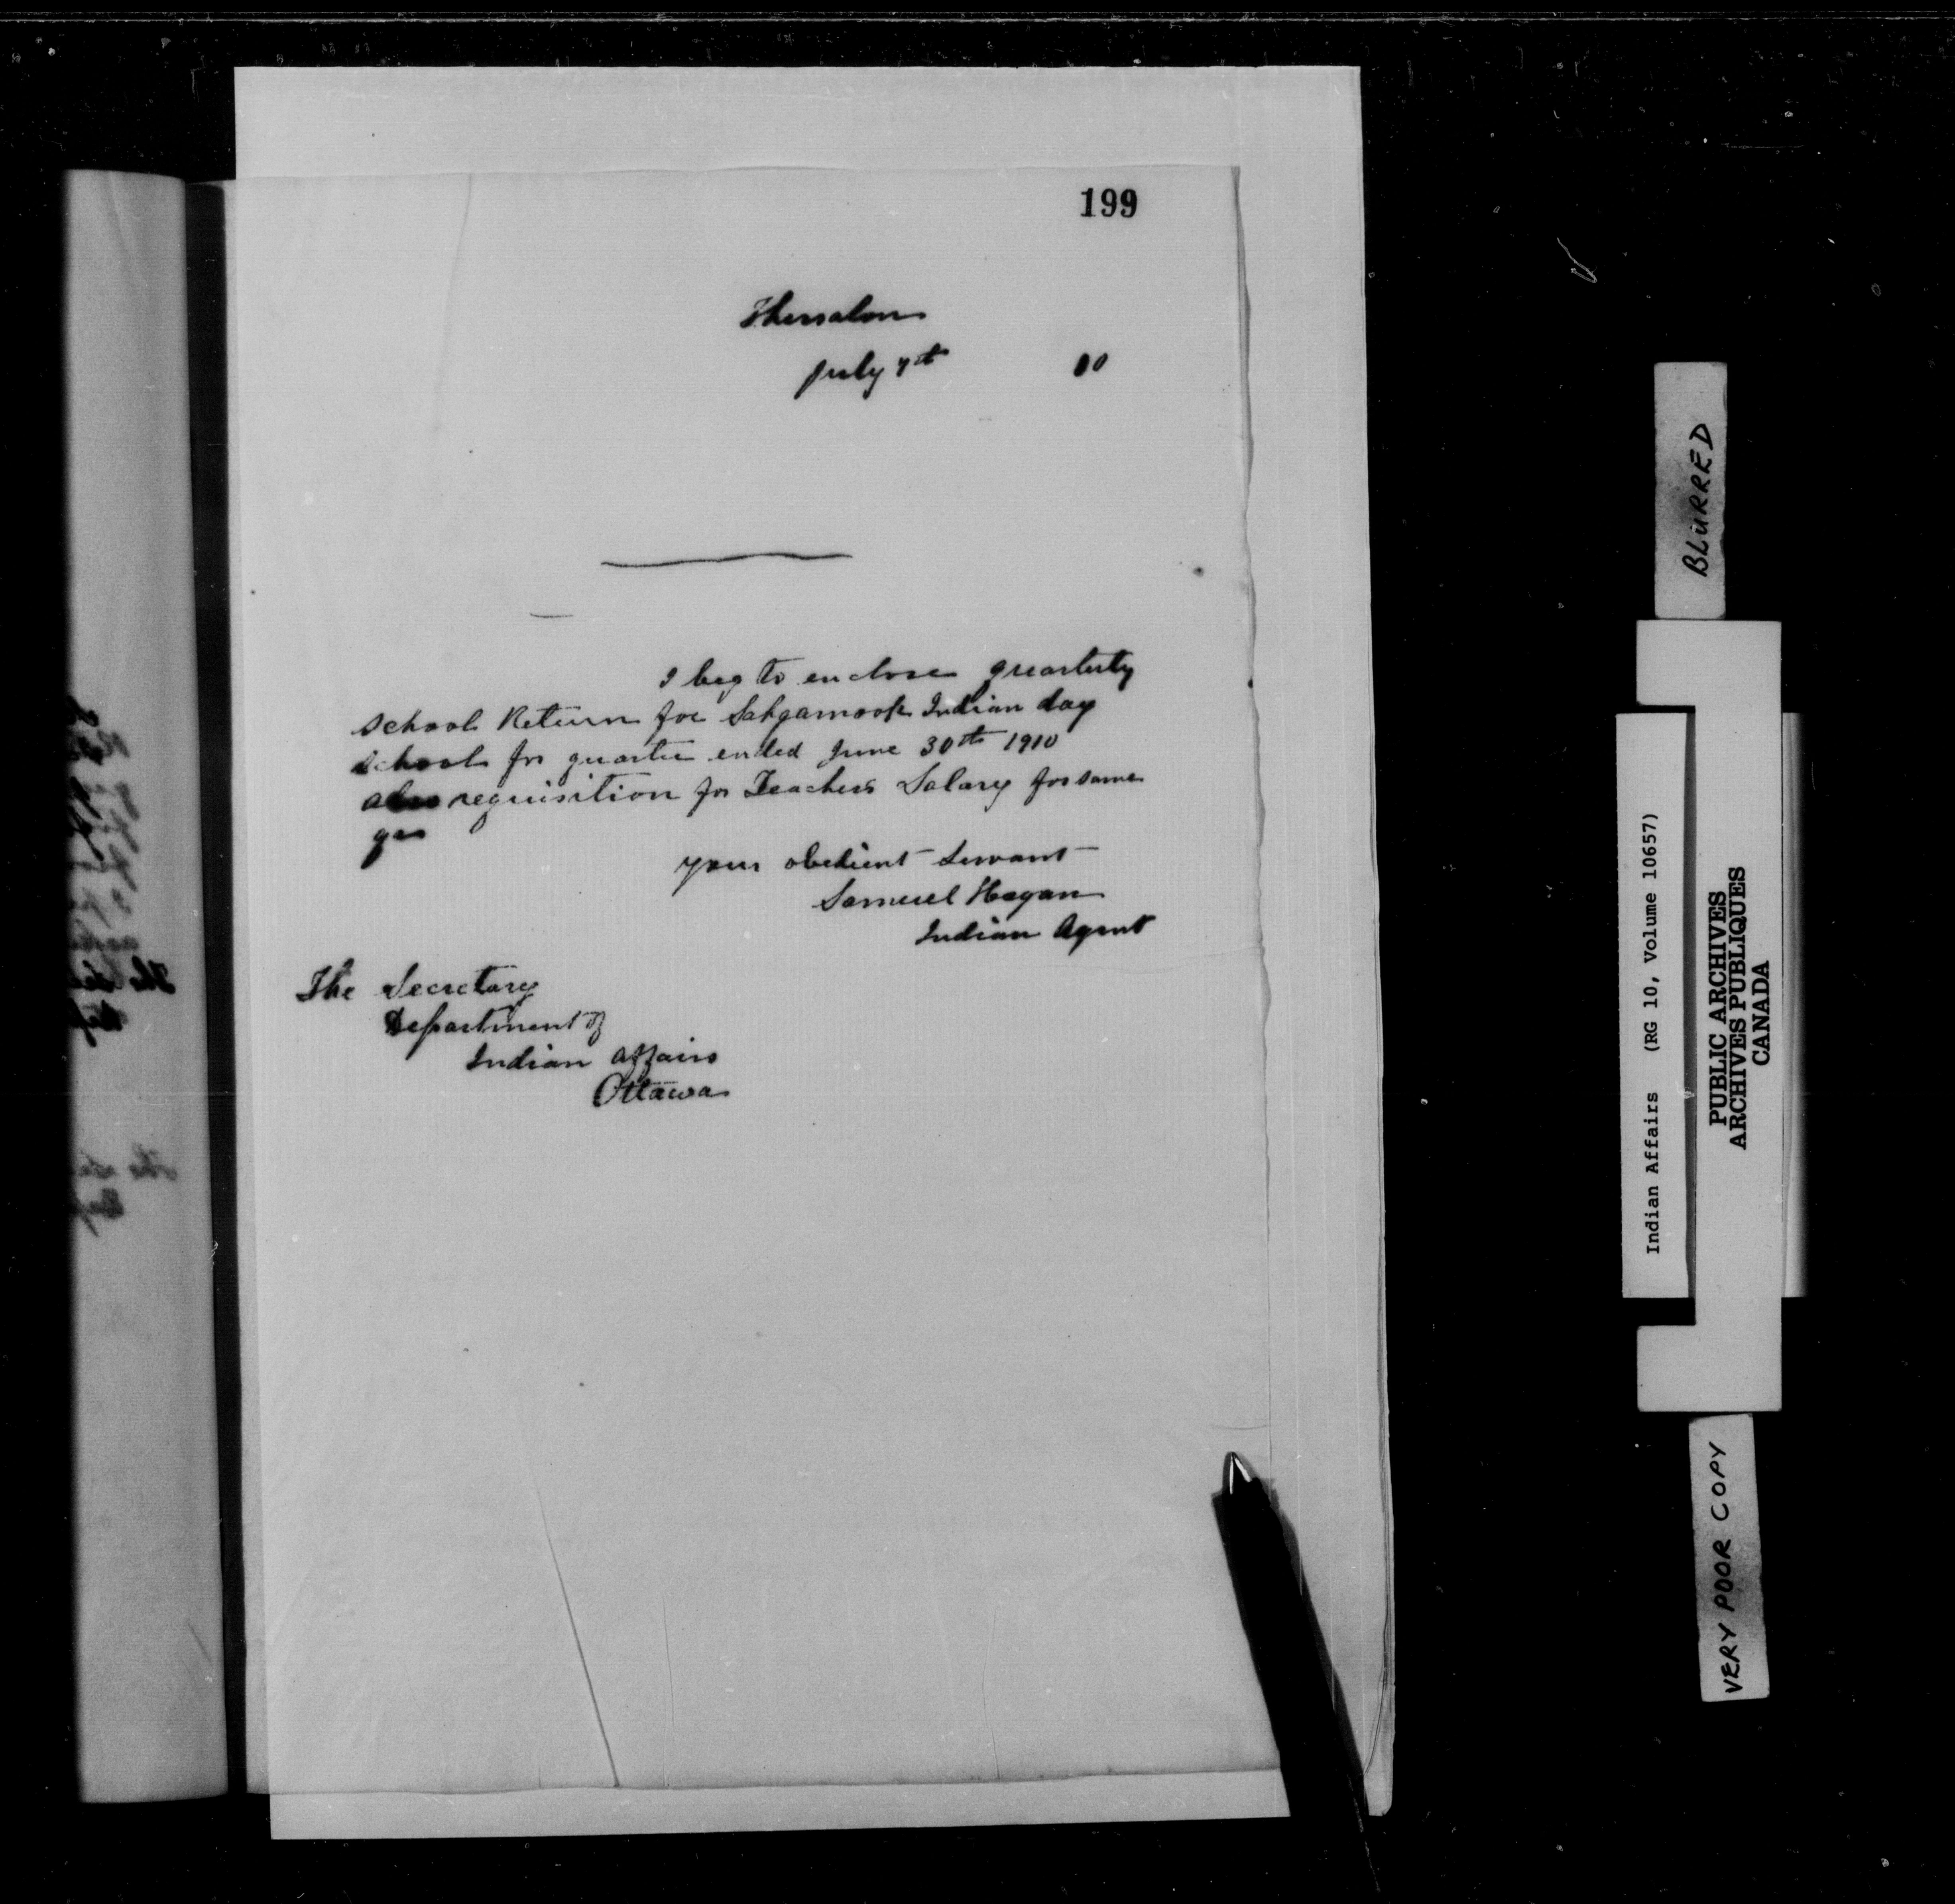 199
Thessalon
July 7th 10
I beg to enclose quarterly
school Return for Sahgamook Indian day
school for quarter ended June 30th 1910
also requisition for Teachers Salary for same
qr
your obedient Servant
Samuel Hagan
Indian Agent
The Secretary
Department of
Indian Affairs
Ottawa
The
BLURRED
Indian Affairs (RG 10, Volume 10657)
PUBLIC ARCHIVES
ARCHIVES PUBLIQUES
CANADA
VERY POOR COPY